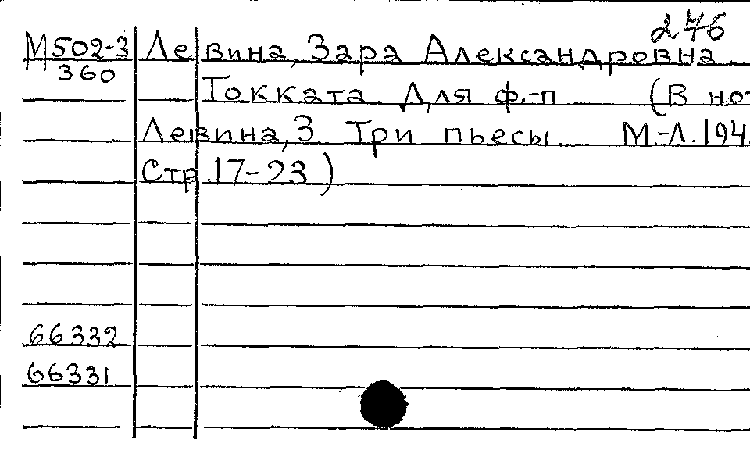 276
М502-3 Левина, Зара Александровна
360
Токката Для ф.-п (В нот
Левина, З Три пьесы М.-Л. 194
Стр. 17-23)
66332
66331